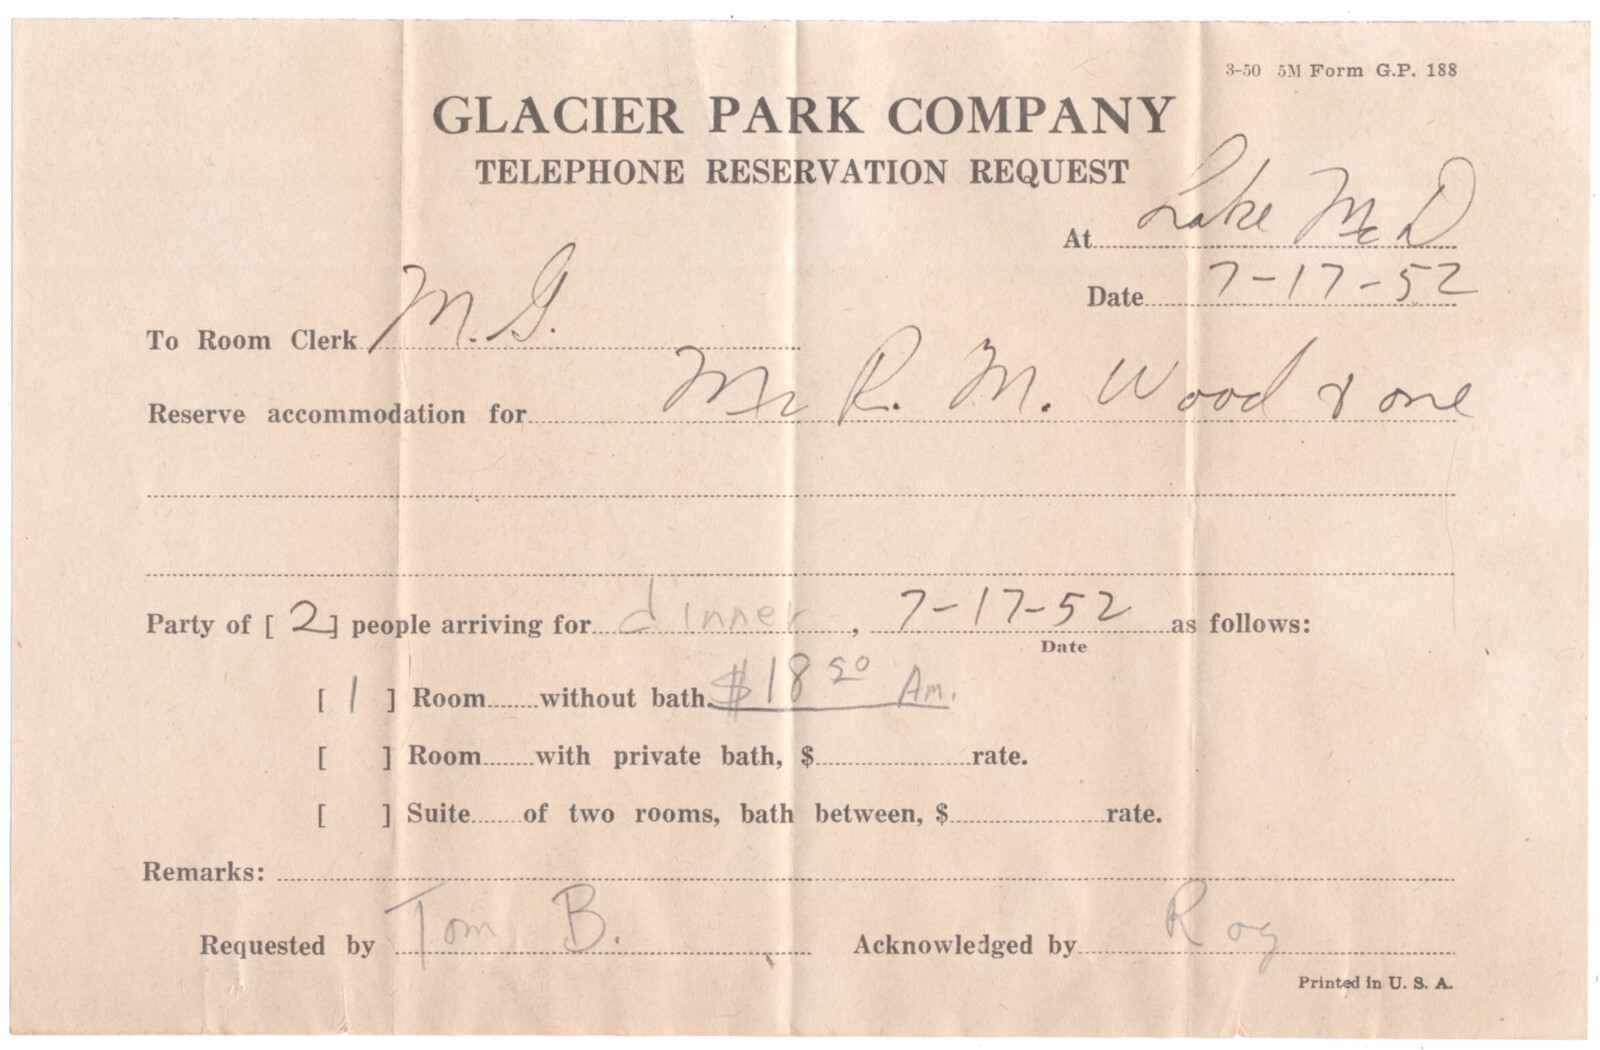 3-50 5M Form G.P. 188
GLACIER PARK COMPANY
TELEPHONE RESERVATION REQUEST
At Lake McD
Date 7-17-52
To Room Clerk M.G.
Reserve accommodation for Mr R. M. Wood & one
Party of [ 2 ] people arriving for dinner, 7-17-52 as follows:
Date
[ 1 ] Room without bath. $18 50 Am.
[ ] Room with private bath, $ rate.
[ ] Suite of two rooms, bath between, $ rate.
Remarks:
Requested by Tom B. Acknowledged by Roy
Printed in U. S. A.